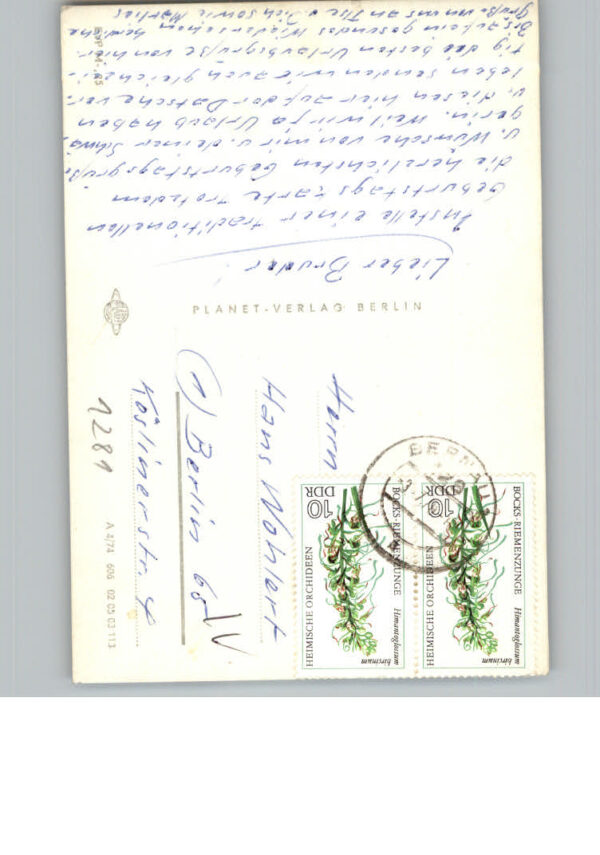 Lieber Bruder!
Anstelle einer traditionellen
Geburtstagskarte trotzdem
die herzlichsten Geburtstagsgrüße
u. Wünsche von mir u. deiner Schwä-
gerin. Weil wir ja Urlaub haben
u. diesen hier auf der Datsche ver-
leben senden wir auch gleichzei-
tig die besten Urlaubsgrüße von hier.
Bis zu ein gesundes Wiedersehen herzliche
Grüße von uns an Ilse u. Dich sowie Marlies
PLANET-VERLAG BERLIN
Herrn
Hans Wohlert
(1) Berlin 65
Köslinerstr. 4
1281
A 4/74 606 02 05 03 113
BERNAU
HEIMISCHE ORCHIDEEN
10
DDR
BOCKS-RIEMENZUNGE
Himantoglossum
hircinum
HEIMISCHE ORCHIDEEN
10
DDR
BOCKS-RIEMENZUNGE
Himantoglossum
hircinum